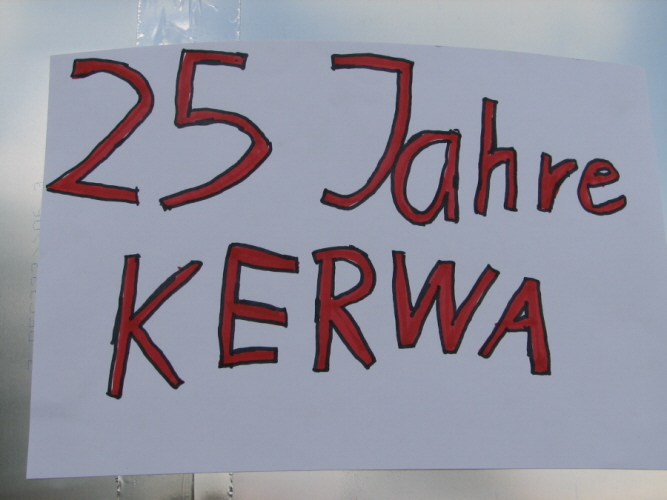 25 Jahre
KERWA